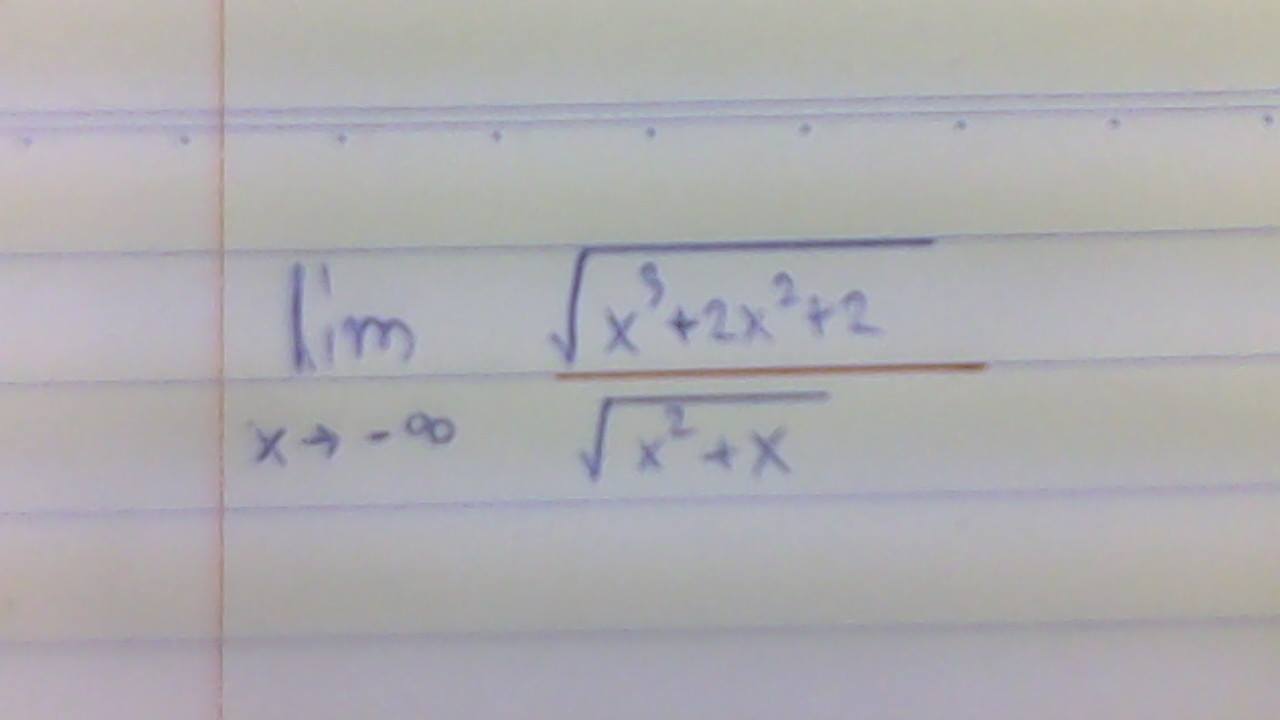 lim √(x³+2x²+2)
x→-∞ √(x²+x)